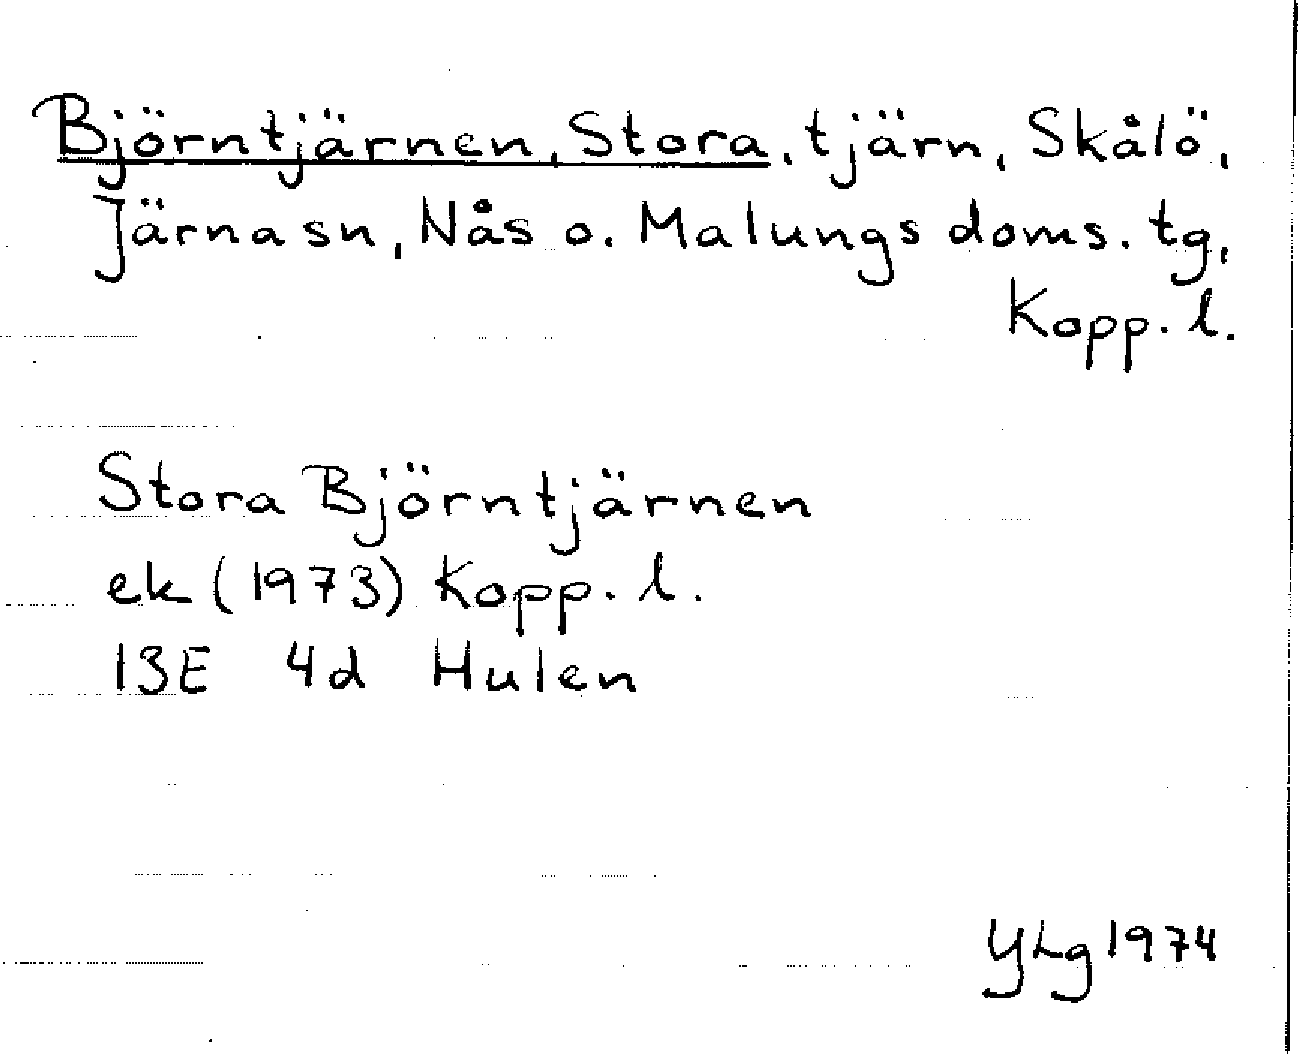 Björntjärnen, Stora, tjärn, Skålö,
Järna sn, Nås o. Malungs doms. tg,
Kopp. l.
Stora Björntjärnen
ek (1973) Kopp. l.
13E 4d Hulen
YLg 1974